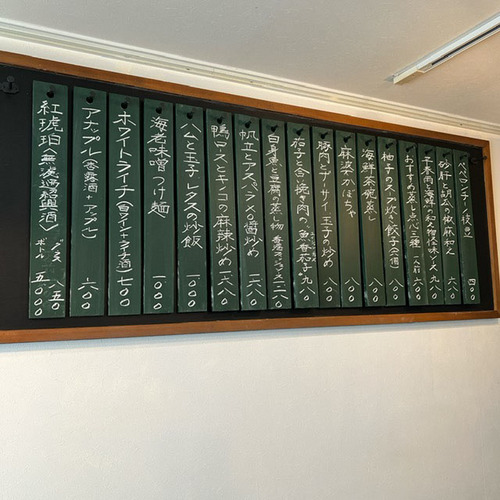 ペペロンチーノ枝豆 四〇〇
砂肝と胡瓜の椒麻和え 六八〇
子春雨と海鮮の和え物怪味ソース 九八〇
おすすめ蒸し点心三種 一人前 六〇〇
柚子のスープ炊き餃子(三個) 六〇〇
海鮮茶碗蒸し 八〇〇
麻婆かぼちゃ 八〇〇
豚肉とザーサイ、玉子の炒め 八〇〇
茄子と合い挽き肉の魚香茄子 九八〇
白身魚と豆腐の蒸し物 一二八〇
帆立とアスパラの醤炒め 一二八〇
鴨ロースとキノコの麻辣炒め 一二八〇
ハムと玉子レタスの炒飯 一〇〇〇
海老味噌つけ麺 一〇〇〇
ホワイトライチ(白ワイン+ライチ酒) 七〇〇
アナップル(杏露酒+アップル) 六〇〇
紅琥珀〈無濾過の紹興酒〉 グラス 八五〇 ボトル 五〇〇〇